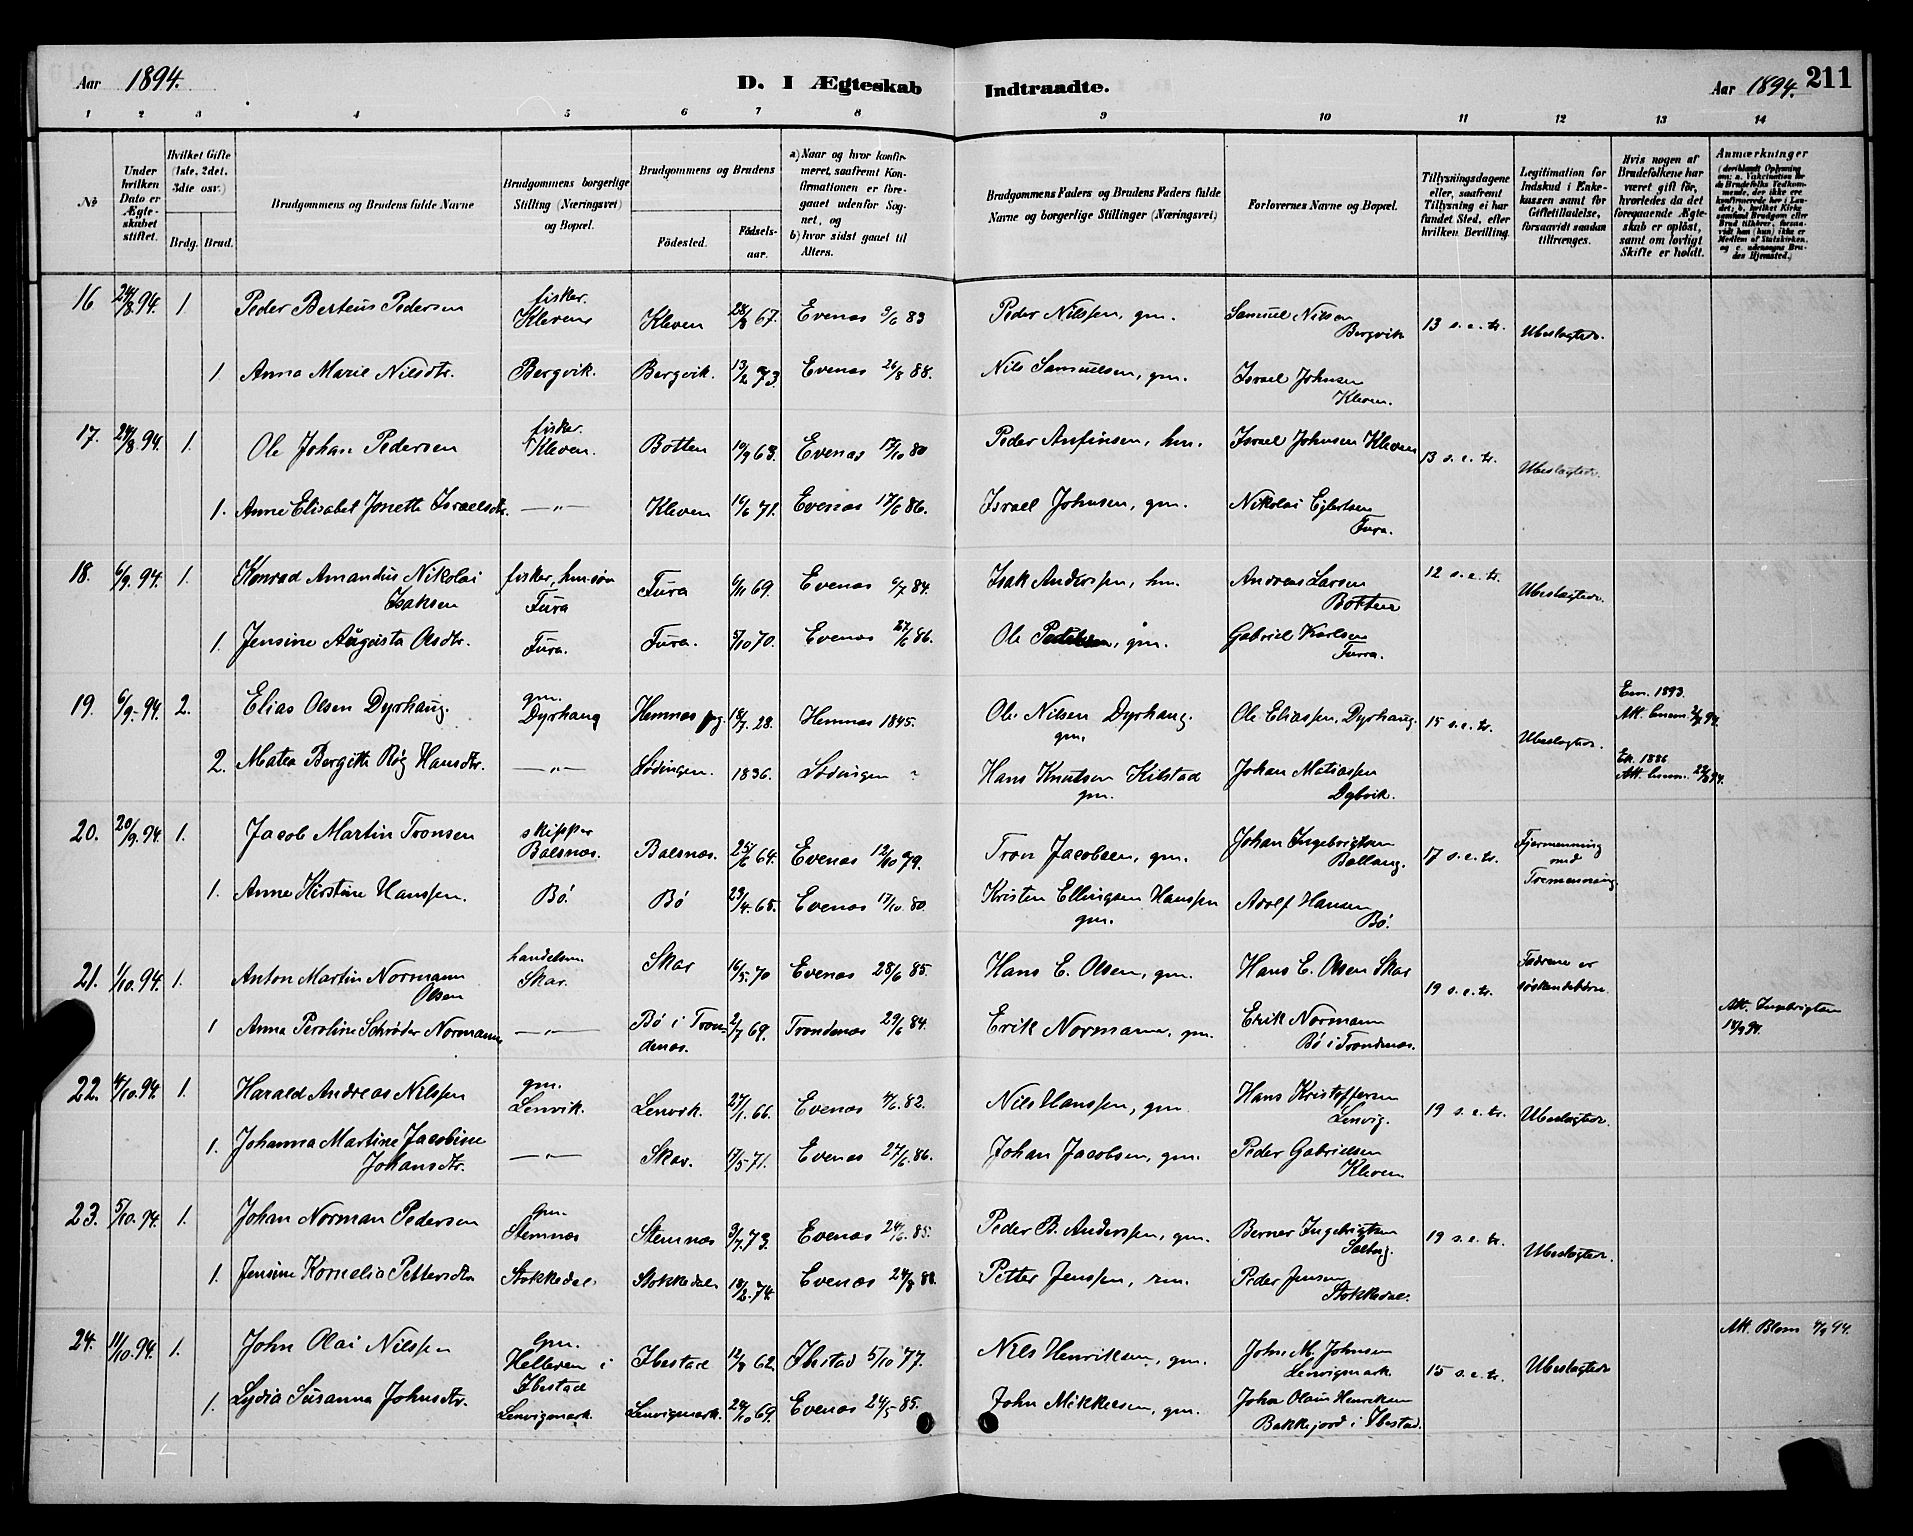 Aar 1894. D. I Ægteskab Indtraadte. Aar 1894. 211
1 2 3 4 5 6 7 8 9 10 11 12 13 14
No
Under hvilken Dato er Ægteskabet stiftet.
Hvilket Gifte (1ste, 2det, 3die osv.)
Brdg. Brud.
Brudgommens og Brudens fulde Navne
Brudgommens borgerlige Stilling (Næringsvei) og Bopæl.
Brudgommens og Brudens
Fødested. Fødselsaar.
a) Naar og hvor konfirmeret, saafremt Konfirmationen er foregaaet udenfor Sognet, og
b) hvor sidst gaaet til Alters.
Brudgommens Faders og Brudens Faders fulde Navne og borgerlige Stillinger (Næringsvei)
Forlovernes Navne og Bopæl.
Tillysningsdagene eller, saafremt Tillysning ei har fundet Sted, efter hvilken Bevilling.
Legitimation for Indskud i Enkekassen samt for Giftetilladelse, forsaavidt saadan tiltrænges.
Hvis nogen af Brudefolkene har været gift før, hvorledes da det foregaaende Ægteskab er opløst, samt om lovligt Skifte er holdt.
Anmærkninger
16 24/8.94. 1 Peder Berteus Pedersen fisker. Klevens Kleven 28/8 67. Evenas 3/6 83 Peder Nilssen, gm. Samuel Nilsen Bergvik 13 s.e.tr. Ubeslægtede.
1. Anna Marie Nilsdtr. Bergvik. Bergvik. 13/2 73. Evenas 26/8 88. Nils Samuelsen, gm. Israel Johnsen Kleven.
17. 24/8.94. 1. Ole Johan Pedersen fisker. Kleven. Botten 10/9 63. Evenas 17/10 80 Peder Anfinsen, hm. Israel Johnsen Kleven 13 s.e.tr. Ubeslægtede.
1. Anne Elisabet Jonette Israelsdtr. —"— Kleven 16/6 71. Evenas 17/6 86. Israel Johnsen, gm. Nikolai Eilertsen Fura.
18. 6/9.94. 1. Konrad Amandus Nikolai Isaksen fisker, hm.søn Fura Fura 6/11 69. Evenas 6/7 84. Isak Anderssen, hm. Andreas Larsen Botten 12 s.e.tr. Ubeslægtede.
1. Jensine Augusta Olsdtr. Fura. Fura. 5/10 70. Evenas 27/6 86. Ole Pedersen, gm. Gabriel Karlsen Furra.
19. 6/9.94. 2. Elias Olsen Dyrhaug. gm. Dyrhaug Hemnas pg. 18/7.28. Hemnas 1845. Ole Nilsen Dyrhaug. gm. Ole Eliassen, Dyrhaug. 15 s.e.tr. Ubeslægtede. Em. 1893.
2. Matea Bergitte Røg Hansdtr. —"— Lødingen. 1836. Lødingen " Hans Knutsen Kilstad gm. Johan Matiassen Dybvik. Ek. 1886
20. 20/9.94 1. Jacob Martin Tronsen skipper Balsnas. Balsnas. 25/6 64. Evenas 12/10 79. Tron Jacobsen, gm. Johan Ingebrigtsen Ballang. 17 s.e.tr. Fjermenning med Tremenning
1. Anne Kirstine Hanssen. Bø. Bø 23/4. 65. Evenas 17/10. 80. Kristen Ellingsen Hanssen gm. Adolf Hansen Bø.
21. 1/10.94. 1. Anton Martin Normann Olsen handelsm. Skar. Skar 16/5. 70 Evenas 28/6 85. Hans E. Olsen, gm. Hans E. Olsen Skar 19 s.e.tr. Fædrene er søskendebørn.
1 Anna Peroline Schrøder Normann —"— Bø i Trondenas. 2/7 69. Trondenas 29/6 84. Erik Normann, gm. Erik Normann Bø i Trondenas. Att. Ingebrigtsen
22. 4/10.94. 1. Harald Andreas Nilssen gm. Lenvik. Lenvik. 27/1. 66. Evenas 4/6. 82. Nils Hanssen, gm. Hans Kristoffersen Lenvig. 19 s.e.tr. Ubeslægtede.
1. Johanna Martine Jacobine Johansdtr. —"— Skar. 17/5 71. Evenas 27/6 86. Johan Jacobsen, gm. Peder Gabrielsen Kleven
23. 5/10.94. 1. Johan Norman Pedersen gm. Stemnas Stemnas 3/7.73. Evenas 24/6. 85. Peder B. Anderssen, gm. Berner Ingebrigtsen 19 s.e.tr. Ubeslægtede.
1. Jensine Kornelia Pettersdtr Stokkedal. Stokkedalen 18/2.74. Evenas 24/8 88. Petter Jenssen, rm. Peder Jensen Stokkedal.
24. 11/10.94. 1. John Olai Nilssen gm. Helleren i Ibestad Ibestad 12/8 62. Ibestad 5/10 77. Nils Henriksen, gm. John M. Johnsen Lenvigmark. 15 s.e.tr. Ubeslægtede Att. Blom 4/9 94.
1. Lydia Susanna Johnsdtr. Lenvigmark. Lenvigmark. 24/10 69. Evenas 24/5 85. John Mikkelsen, gm. Johan Olaus Henriksen Bakkejord i Ibestad.